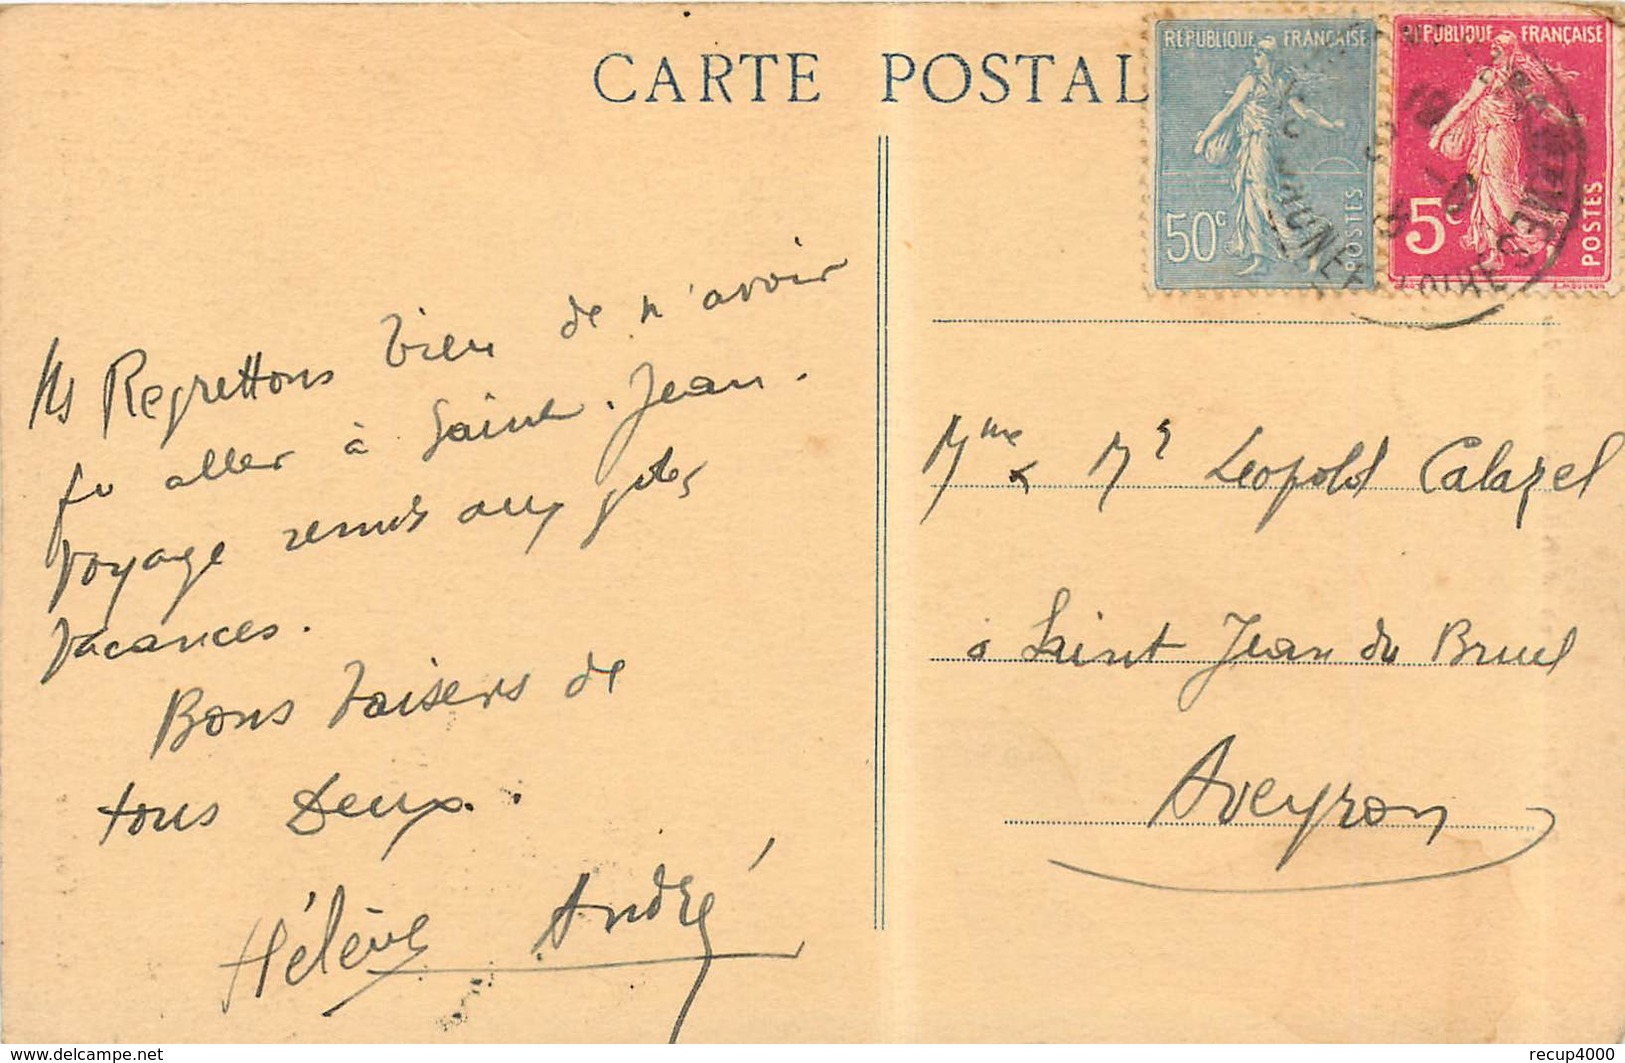 CARTE POSTAL
RÉPUBLIQUE FRANÇAISE
50c
POSTES
RÉPUBLIQUE FRANÇAISE
5c
POSTES
Ns Regrettons bien de n'avoir
pu aller à Saint. Jean.
Voyage remis aux ptes
Vacances.
Bons baisers de
tous deux.
Hélène André
Mme & Mr Leopold Calazel
à Saint Jean du Bruel
Aveyron
www.delcampe.net
recup4000